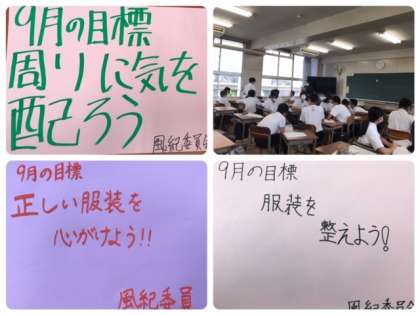 9月の目標
周りに気を
配ろう
風紀委員会
9月の目標
正しい服装を
心がけよう!!
風紀委員
9月の目標
服装を
整えよう!
風紀委員会